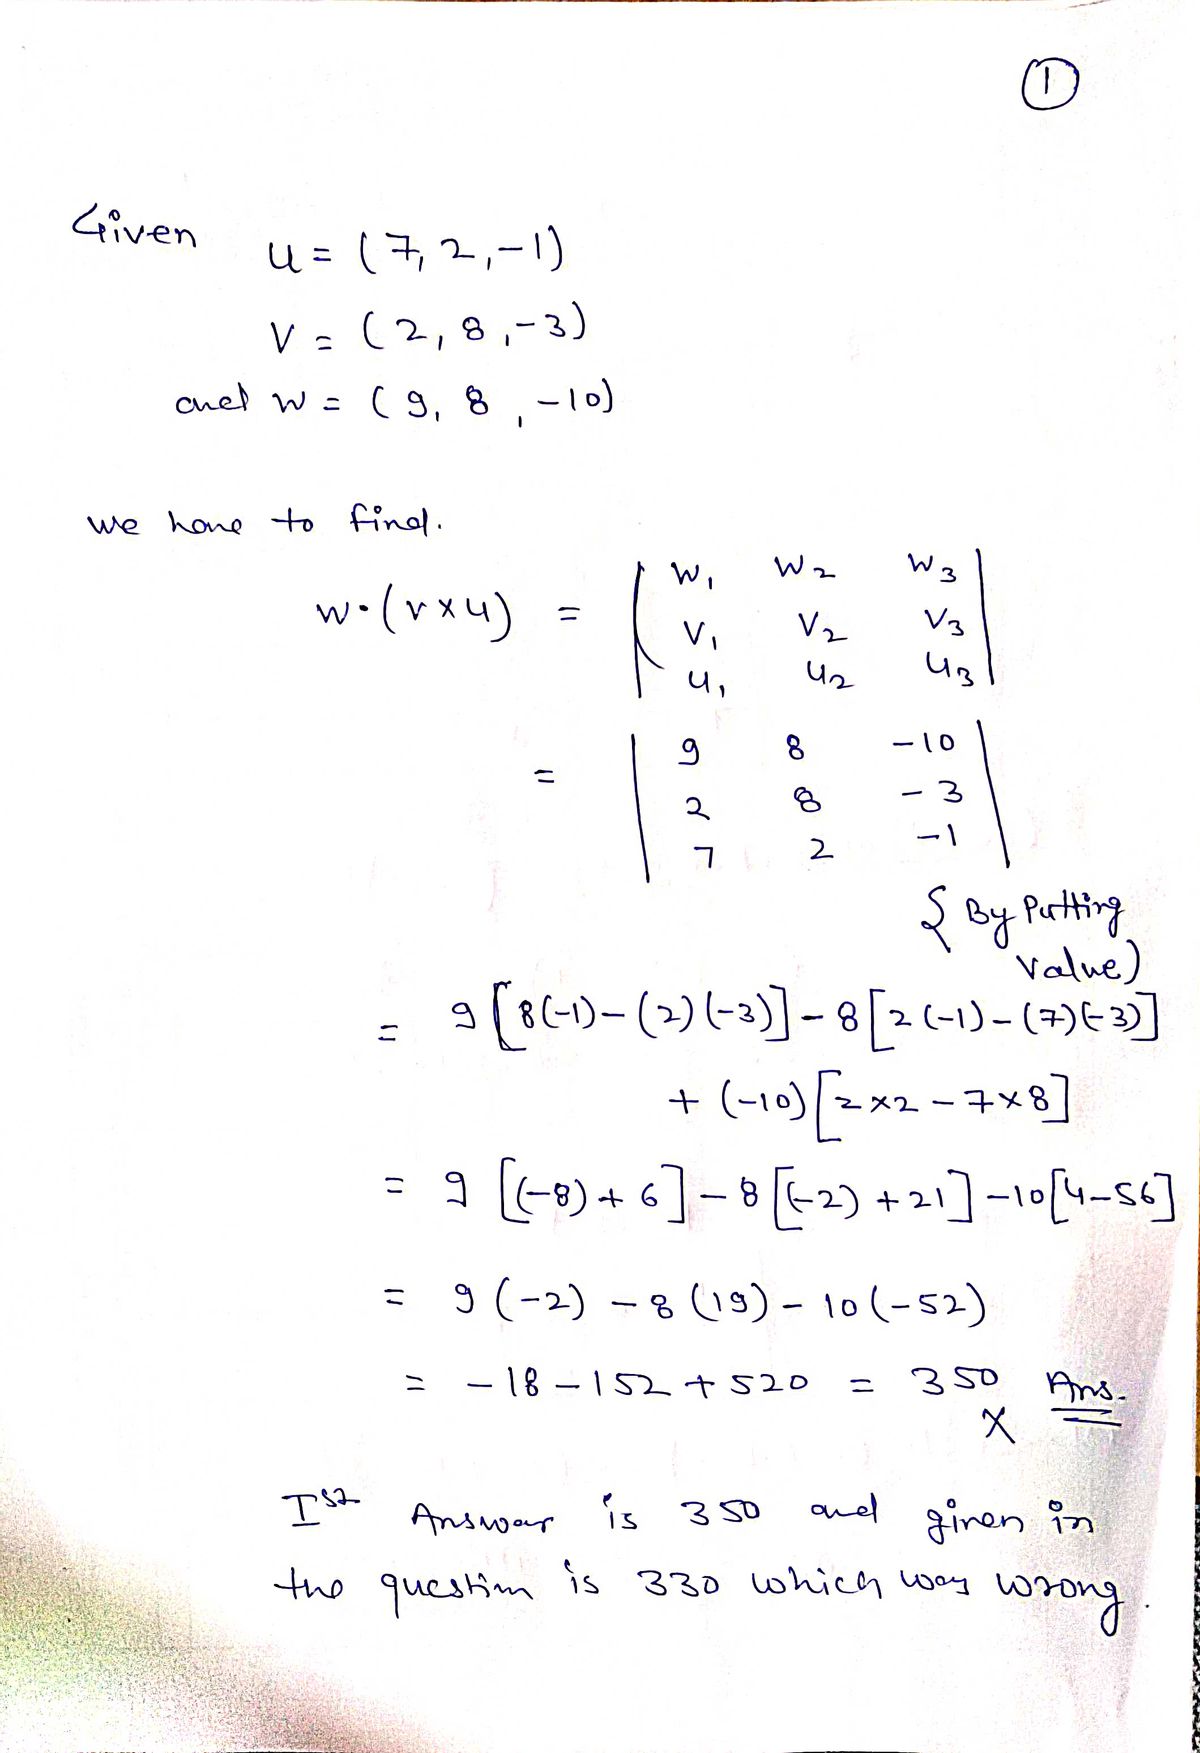 ①
Given u = (7, 2, -1)
v = (2, 8, -3)
and w = (9, 8, -10)
we have to find.
w·(v×u) = | w₁ w₂ w₃ |
| v₁ v₂ v₃ |
| u₁ u₂ u₃ |
= | 9 8 -10 |
| 2 8 -3 |
| 7 2 -1 |
{ By Putting
value)
= 9[8(-1)-(2)(-3)] - 8[2(-1)-(7)(-3)]
+ (-10)[2×2 - 7×8]
= 9[(-8)+6] - 8[(-2)+21] -10[4-56]
= 9(-2) - 8(19) - 10(-52)
= -18-152+520 = 350 Ans.
X
Ist Answar is 350 and given in
the question is 330 which was wrong.